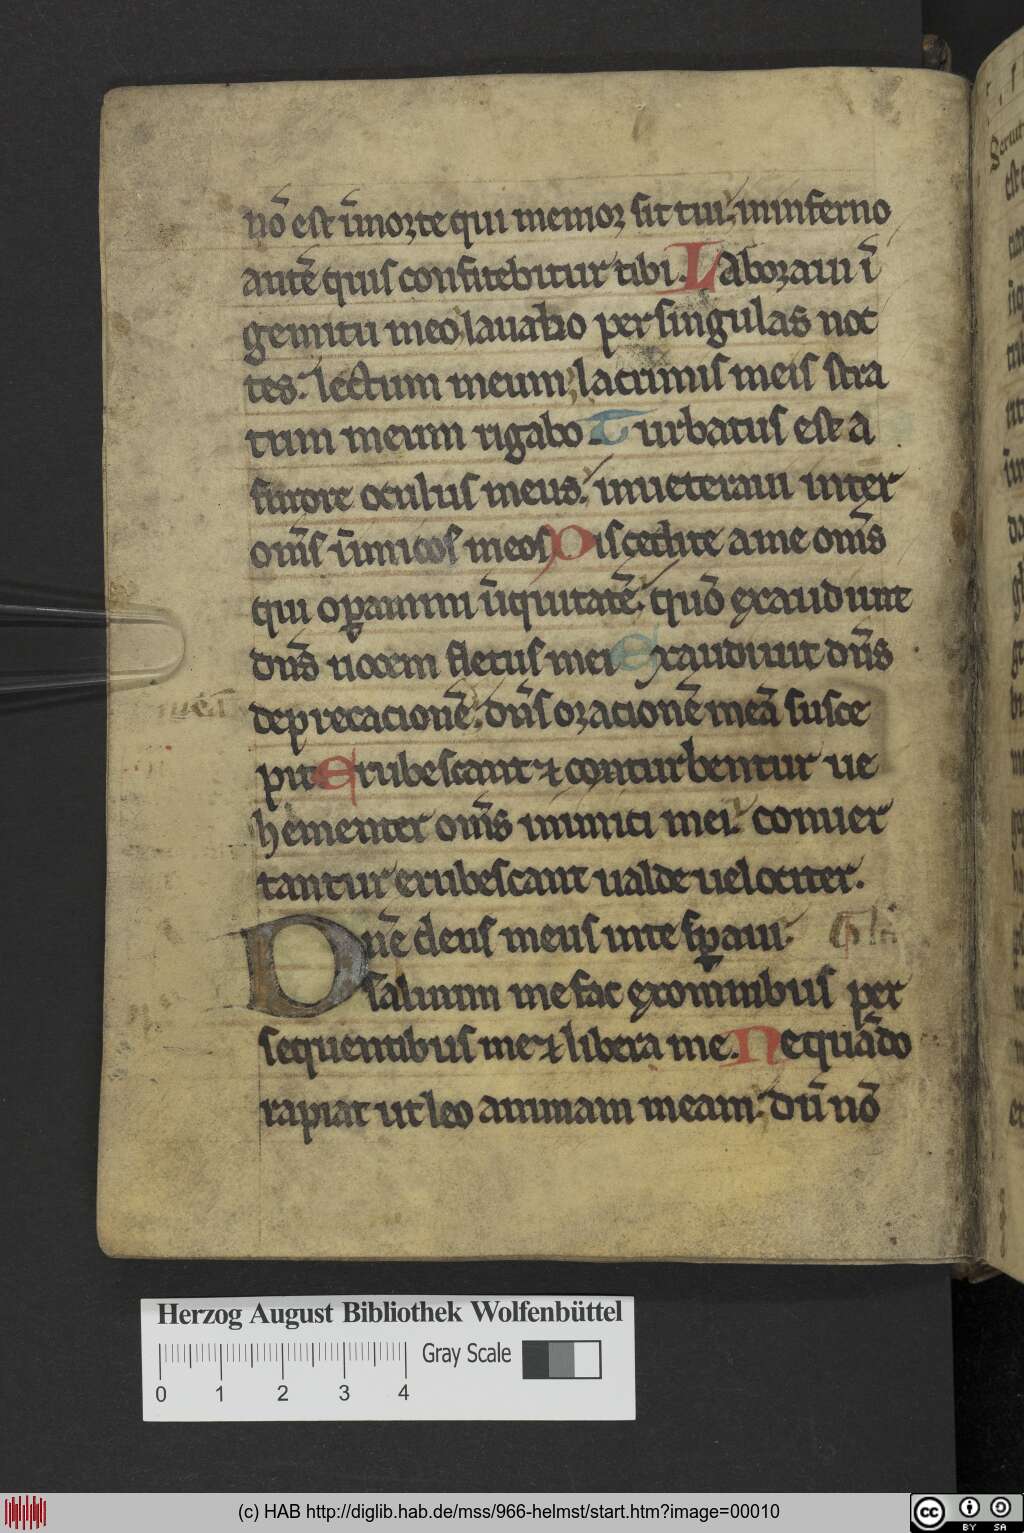 nō est ī morte qui memor sit tui. in inferno
autē quis confitebitur tibi. Laboraui ī
gemitu meo lauabo per singulas noc
tes. lectum meum lacrimis meis stra
tum meum rigabo. Turbatus est a
furore oculus meus. inueteraui inter
om̄s inimicos meos Discedite a me om̄s
qui operamini īiquitatē. quō exaudiuit
dn̄s uocem fletus mei Exaudiuit dn̄s
deprecacionē. dn̄s oracionē meā susce
pit Erubescant ⁊ conturbentur ue
hementer om̄s inimici mei. conuer
tantur erubescant ualde uelociter.
Dn̄e deus meus in te sꝑaui.
saluum me fac ex omnibus per
sequentibus me ⁊ libera me. Ne quādo
rapiat ut leo animam meam. dū nō
Herzog August Bibliothek Wolfenbüttel
Gray Scale
0 1 2 3 4
(c) HAB http://diglib.hab.de/mss/966-helmst/start.htm?image=00010
cc BY SA